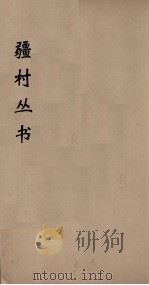 疆村丛书
mtoou.info